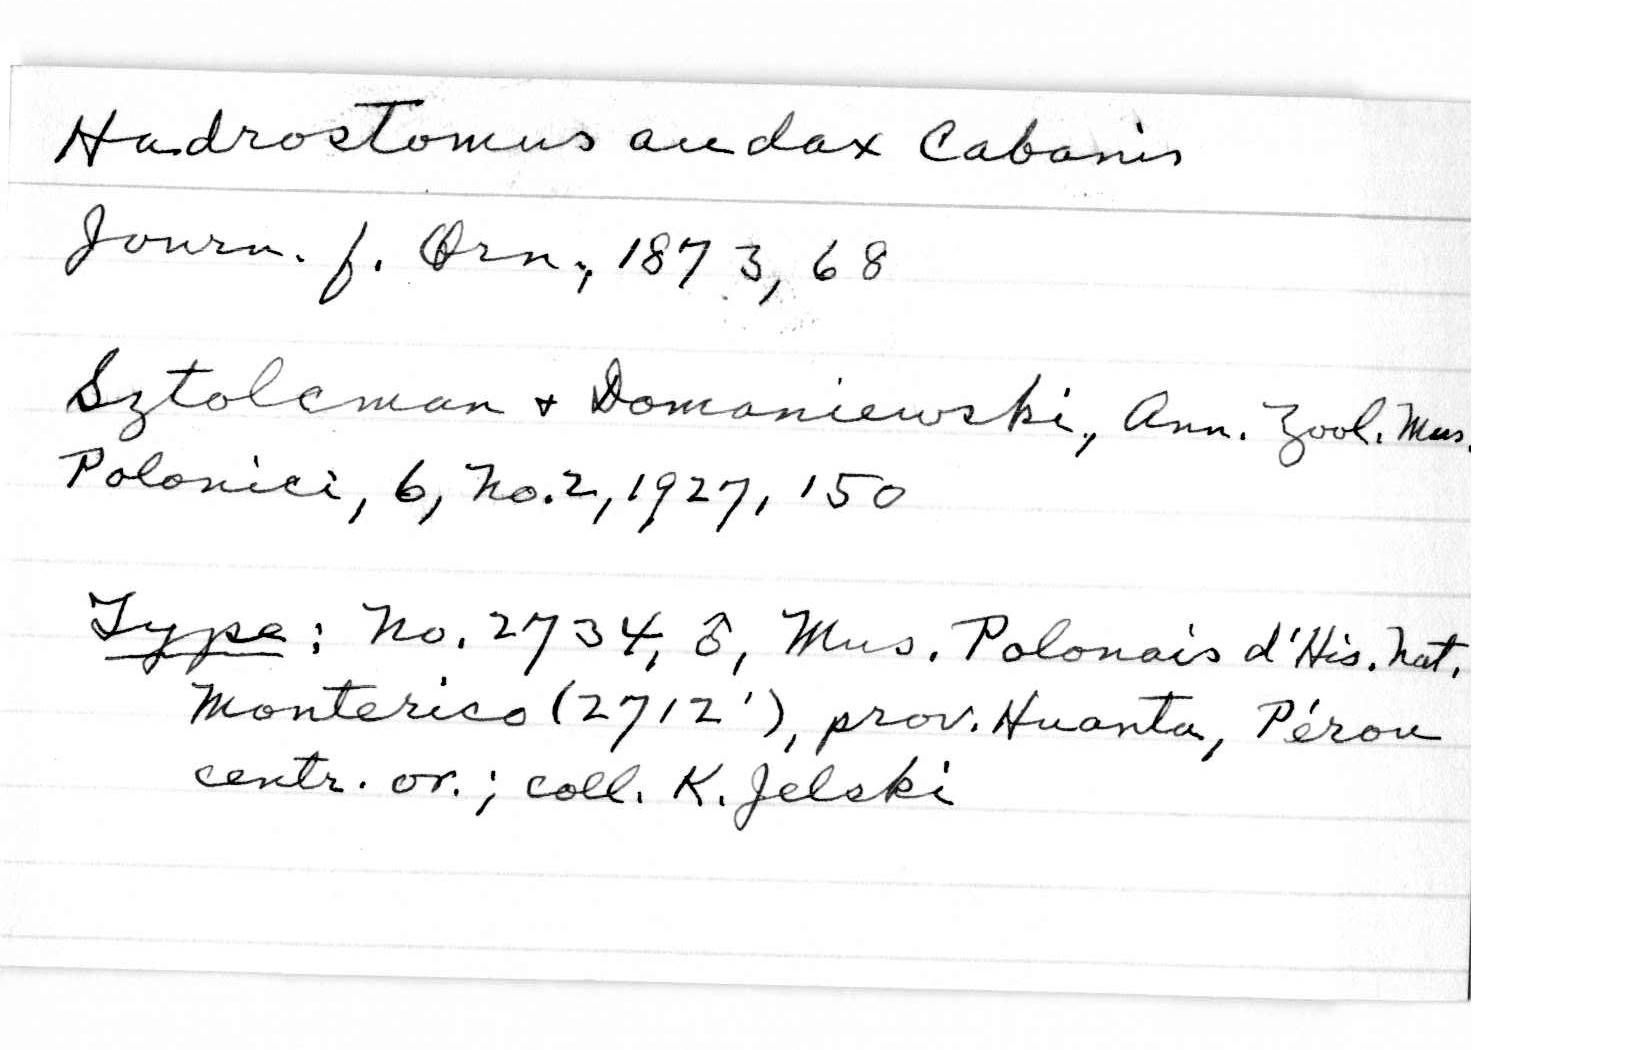 Hadrostomus audax Cabanis
Journ. f. Orn., 1873, 68
Sztolcman + Domaniewski, Ann. Zool. Mus.
Polonici, 6, No. 2, 1927, 150
Type: No. 2734, ♂, Mus. Polonais d'His. Nat.
Monterico (2712'), prov. Huanta, Pérou
centr. or.; coll. K. Jelski